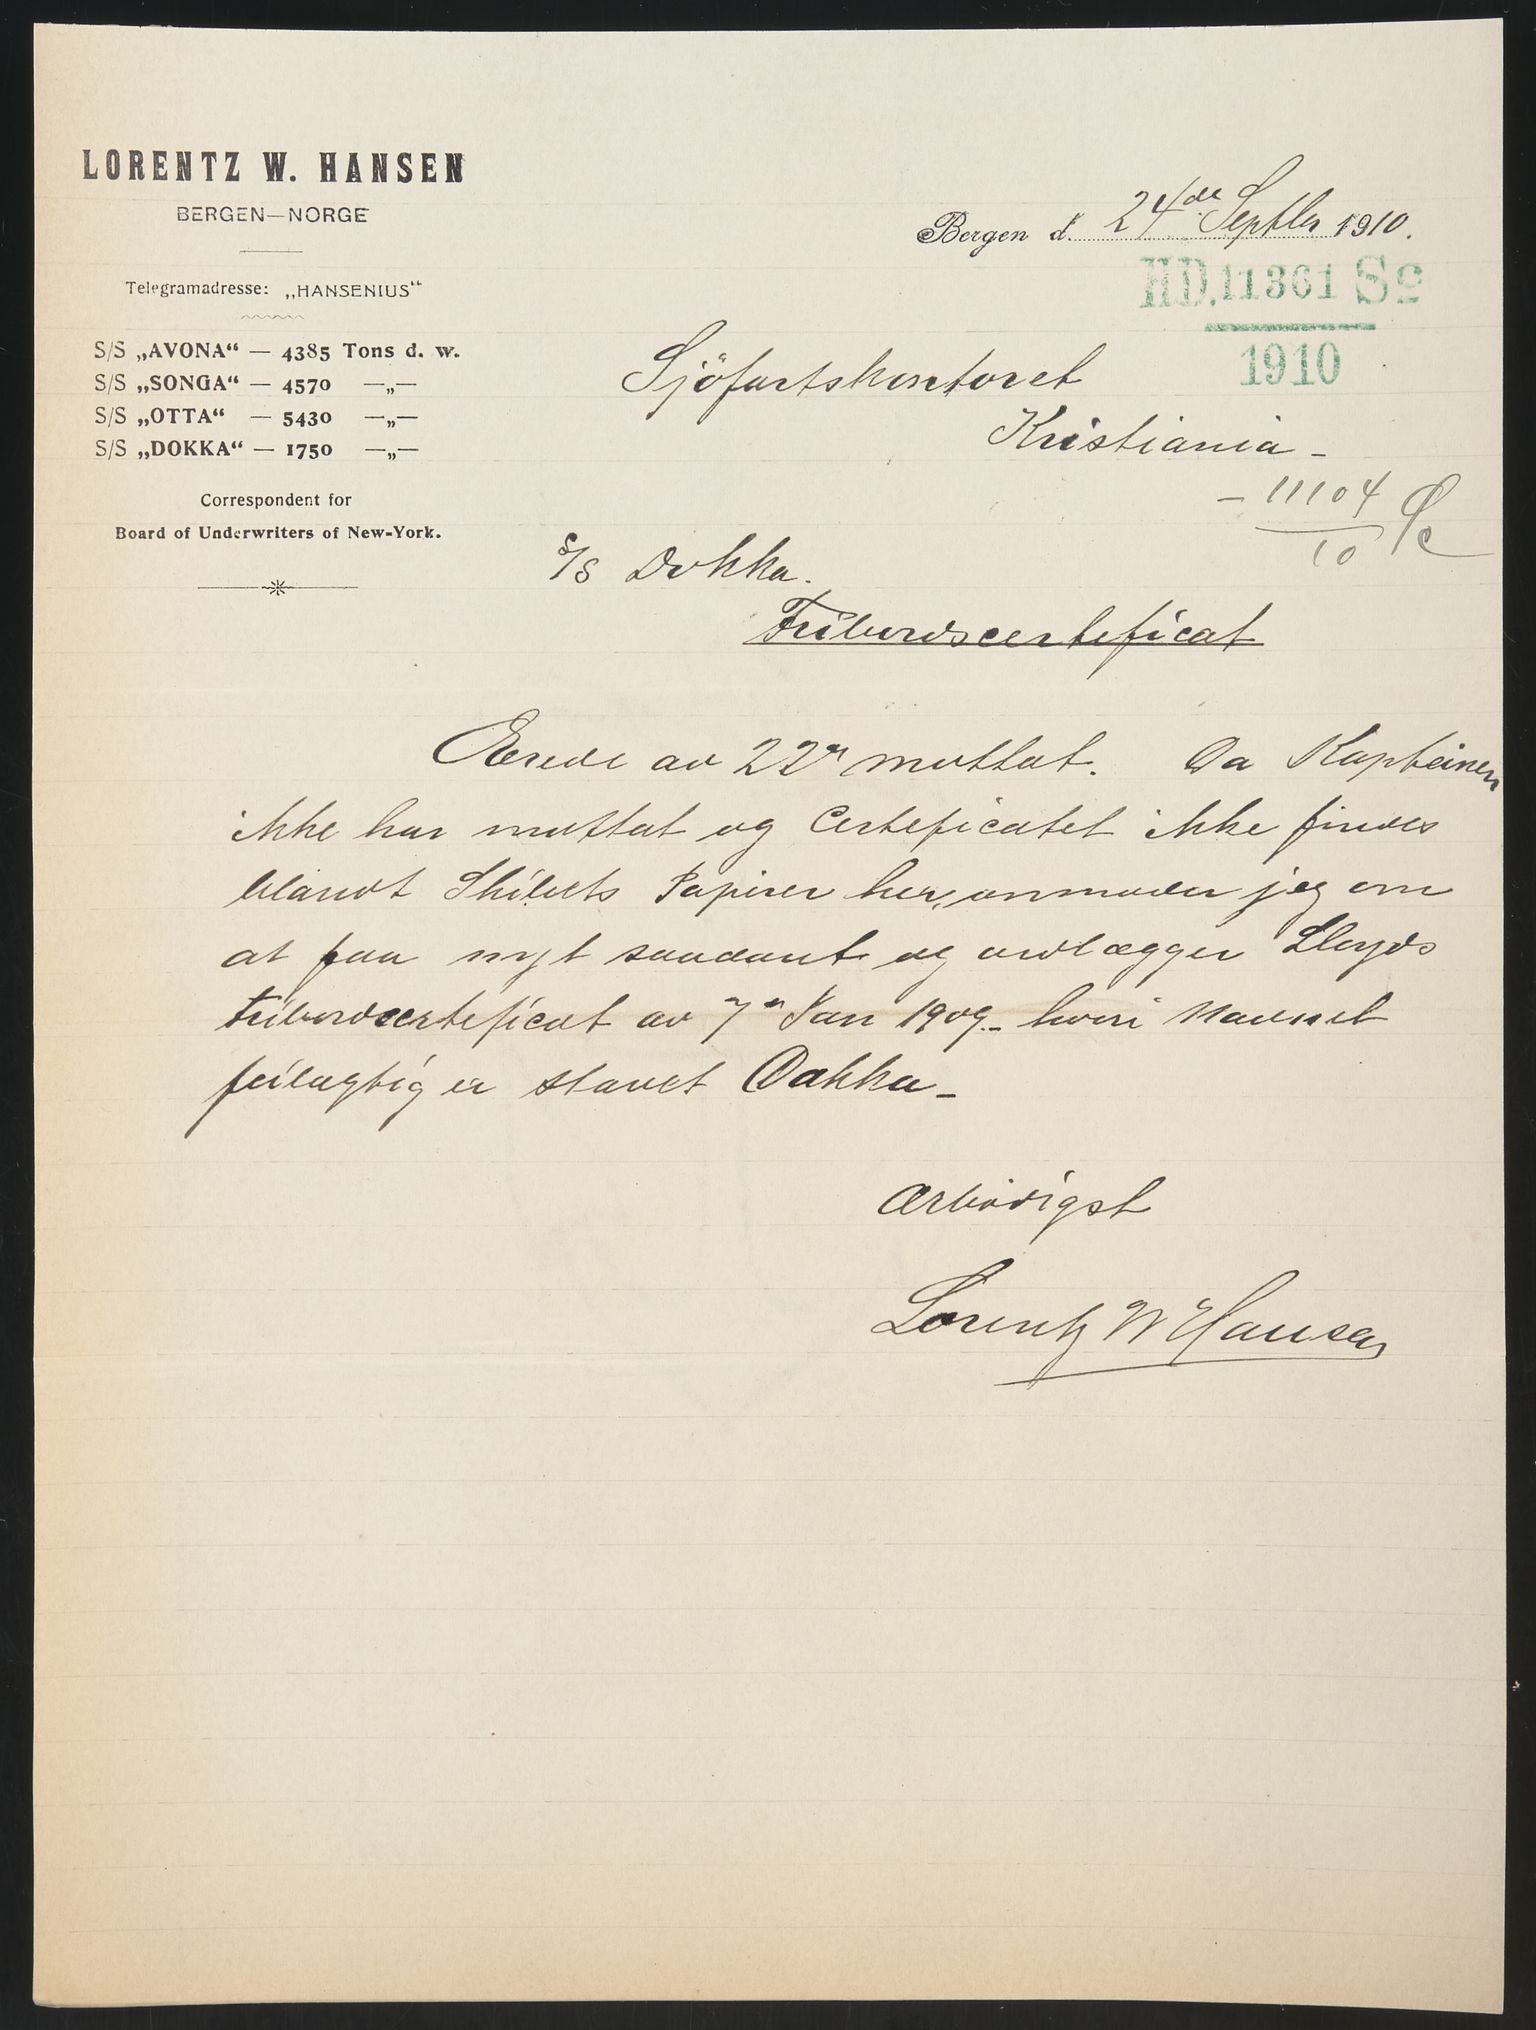 LORENTZ W. HANSEN
BERGEN—NORGE
Telegramadresse: „HANSENIUS“
S/S „AVONA“ — 4385 Tons d. w.
S/S „SONGA“ — 4570 —„—
S/S „OTTA“ — 5430 —„—
S/S „DOKKA“ — 1750 —„—
Correspondent for
Board of Underwriters of New-York.
Bergen d. 24de Septbr 1910.
HD. 11361 Sc
1910
Sjöfartskontoret
Kristiania -
- 11104
10
S/S Dokka.
Fribordscerteficat
Ærede av 22n mottat. Da Kapteinen
ikke har mottat og Certeficatet ikke findes
blandt Skibets Papirer her, anmoder jeg om
at faa nyt saadant og vedlægger Lloyds
Fribordscerteficat av 7n Jan 1909 - hvori Navnet
feilagtig er stavet Dakka -
Ærbödigst
Lorentz W Hansen